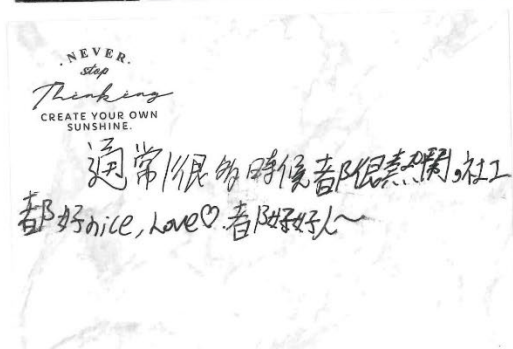 . NEVER.
stop
Thinking
CREATE YOUR OWN
SUNSHINE.
通常很多時候都很熱鬧,社工
都好nice, Love♡.都好好人~